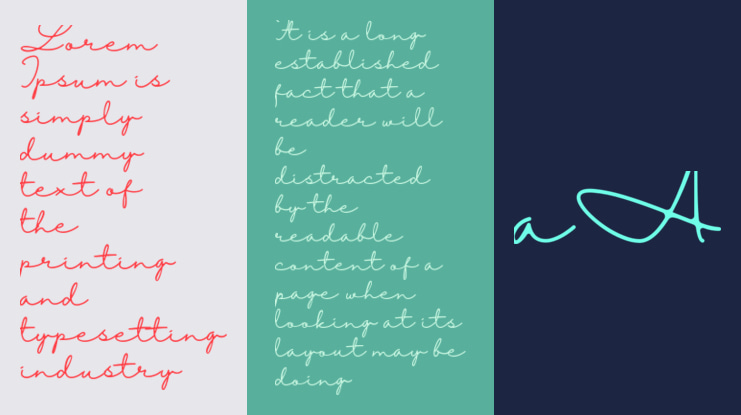 Lorem
Ipsum is
simply
dummy
text of
the
printing
and
typesetting
industry
It is a long
established
fact that a
reader will
be
distracted
by the
readable
content of a
page when
looking at its
layout may be
doing
a A